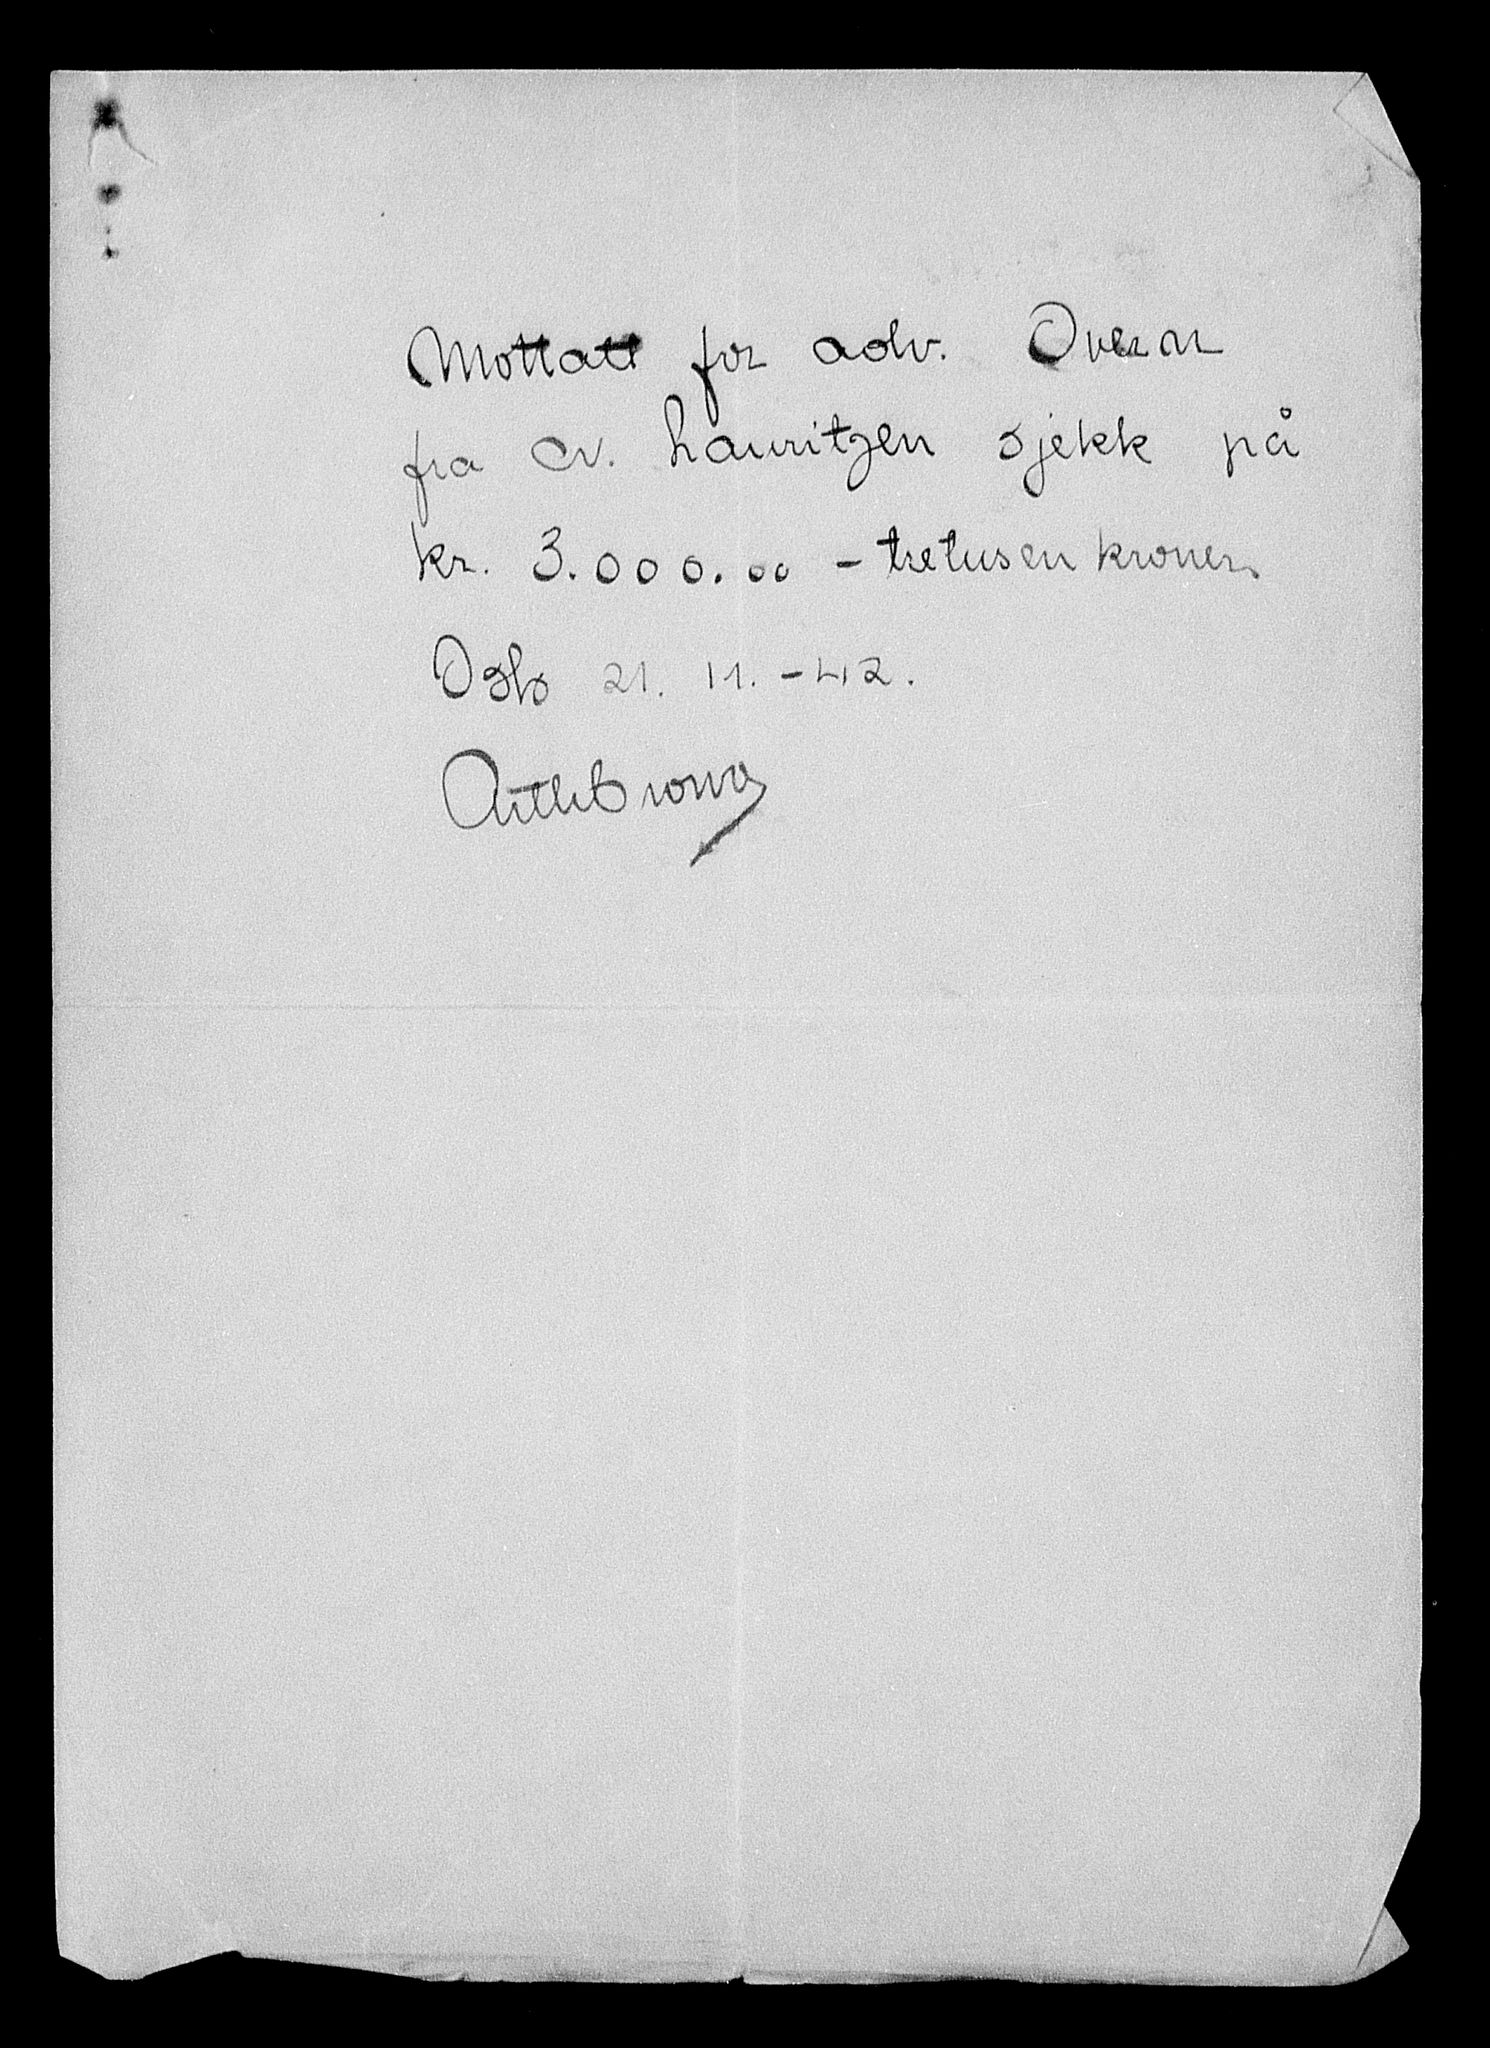 Mottatt for adv. Overn
fra cv. Lauritzen sjekk på
kr. 3.000.00 - tretusen kroner.
Oslo 21. 11. - 42.